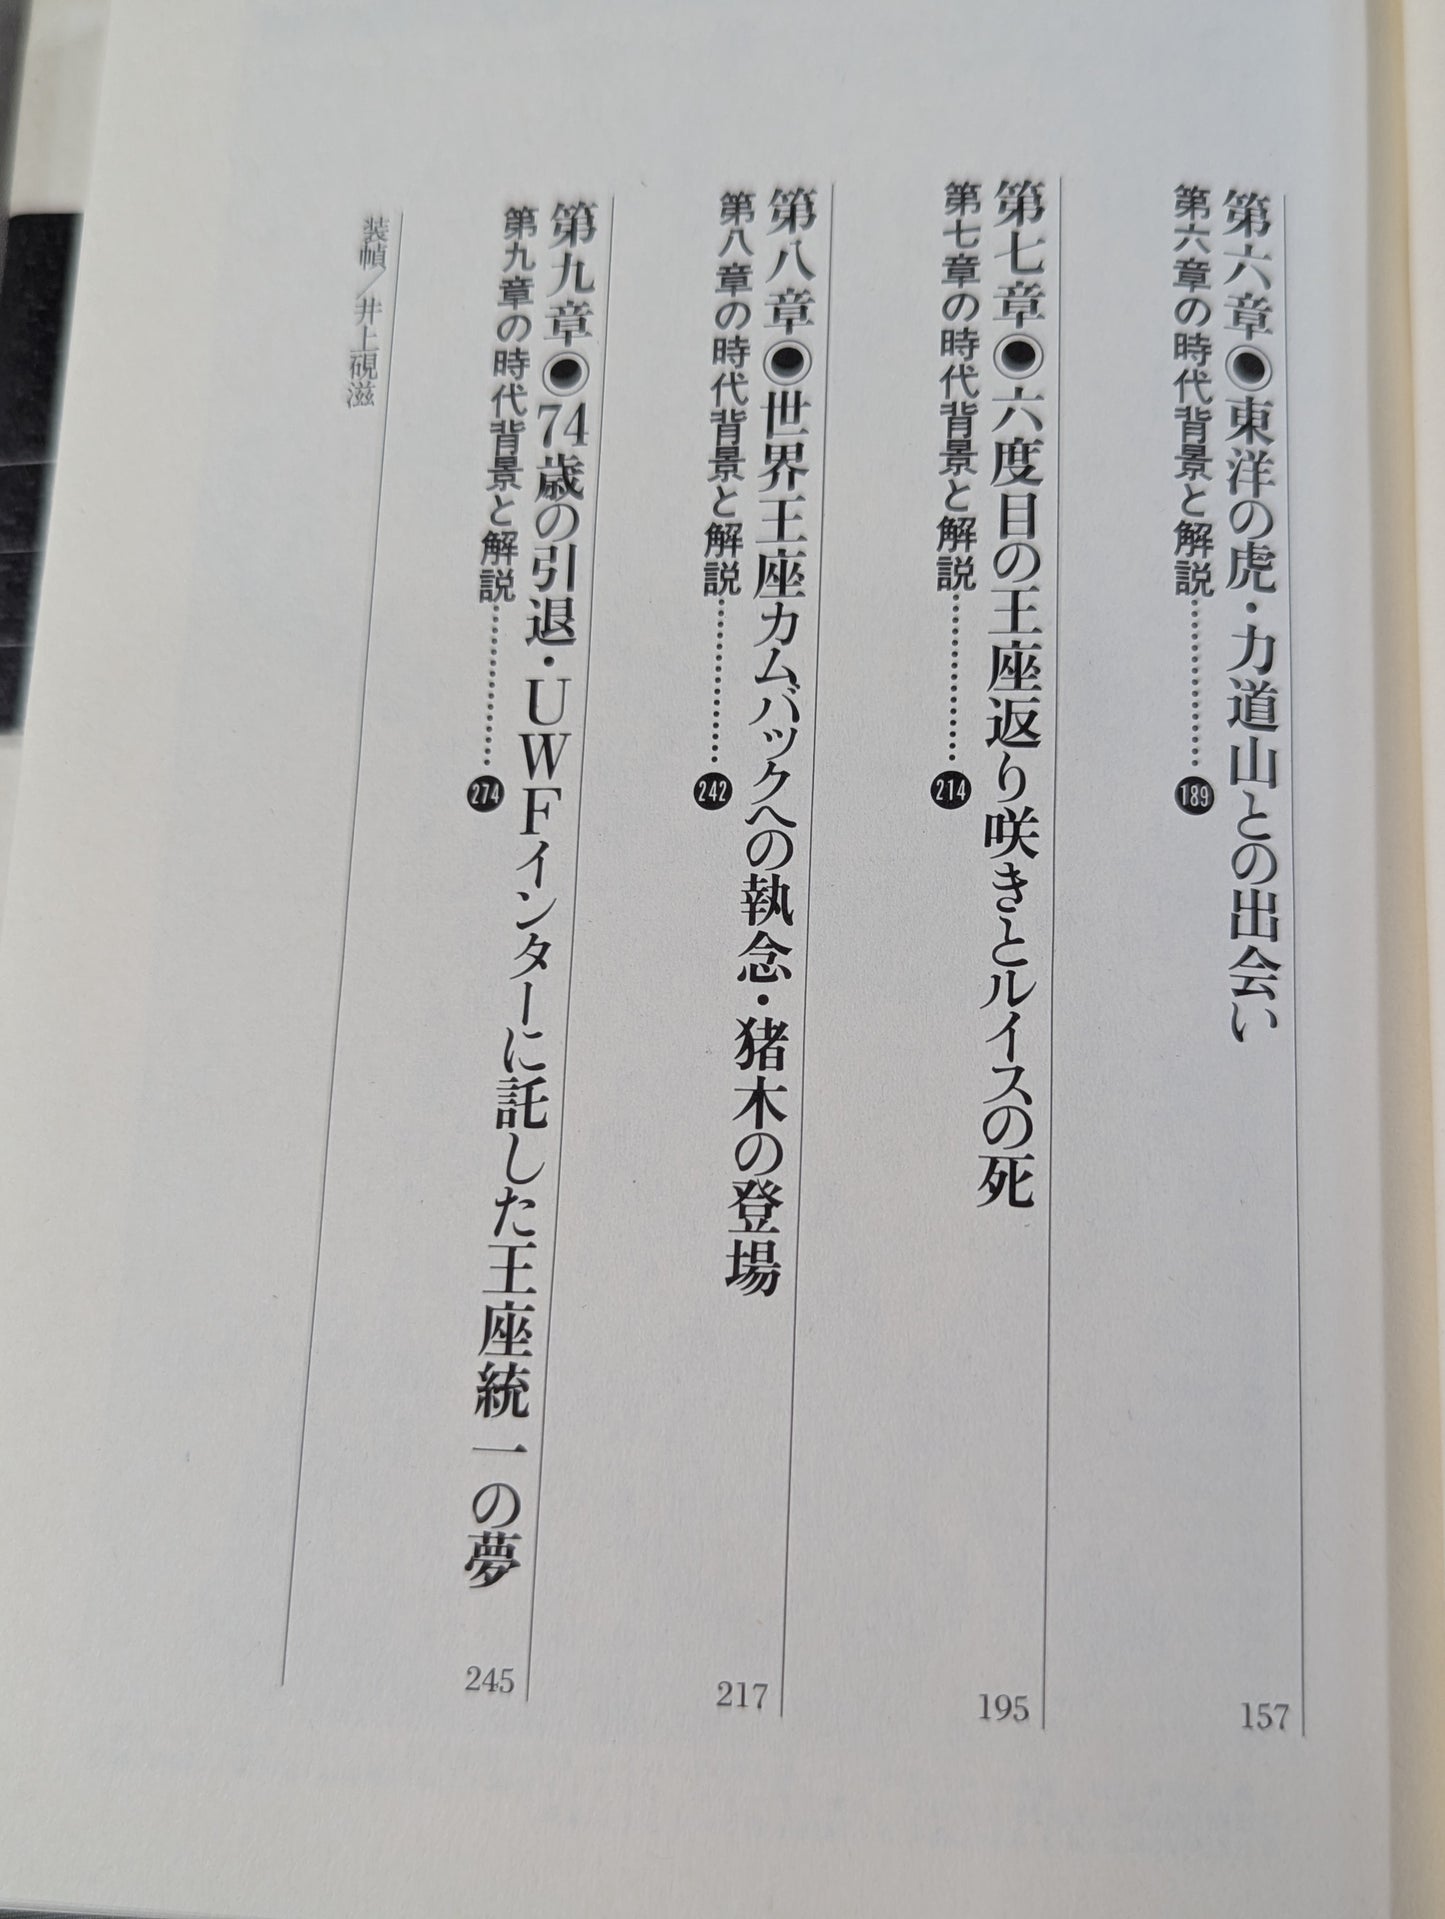 第六章●東洋の虎・力道山との出会い 157
第六章の時代背景と解説…………189
第七章●六度目の王座返り咲きとルイスの死 195
第七章の時代背景と解説…………214
第八章●世界王座カムバックへの執念・猪木の登場 217
第八章の時代背景と解説…………242
第九章●74歳の引退・UWFインターに託した王座統一の夢 245
第九章の時代背景と解説…………274
装幀／井上硯滋